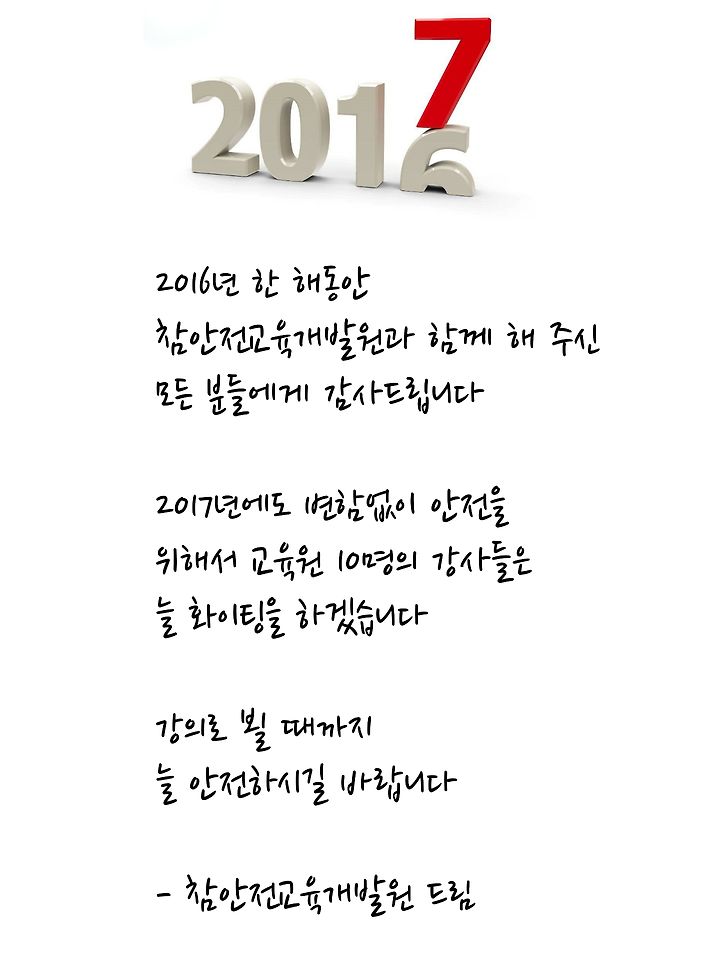 2017
6
2016년 한 해동안
참안전교육개발원과 함께 해 주신
모든 분들에게 감사드립니다
2017년에도 변함없이 안전을
위해서 교육원 10명의 강사들은
늘 화이팅을 하겠습니다
강의로 뵐 때까지
늘 안전하시길 바랍니다
- 참안전교육개발원 드림